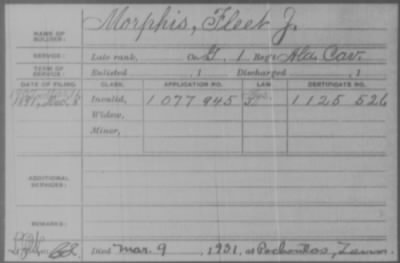 NAME OF SOLDIER: Morphis, Fleet J.
SERVICE: Late rank, Co. G, 1 Reg't Ala. Cav.
TERM OF SERVICE: Enlisted , 1 Discharged , 1
DATE OF FILING. CLASS. APPLICATION NO. LAW CERTIFICATE NO.
1891, 8 Invalid, 1 077 945 1 125 526
Widow,
Minor,
ADDITIONAL SERVICES:
REMARKS:
Died Mar. 9, 1921, at Pocahontas, Tenn.